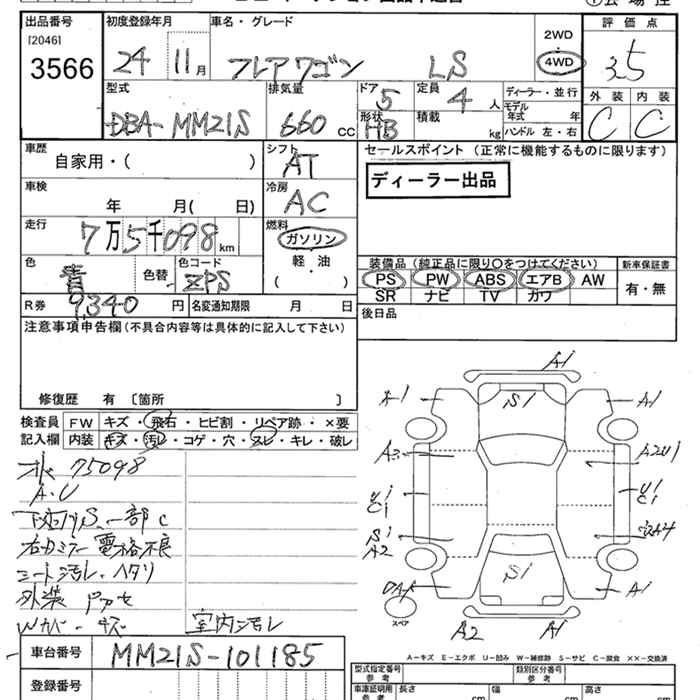 出品番号 初度登録年月 車名・グレード 2WD 評価点
[2046] 3566 24 11月 フレアワゴン LS 4WD 3.5
型式 排気量 ドア 定員 ディーラー・並行 外装 内装
DBA-MM21S 660 cc 5 4 人 モデル年式 年 C C
形状 HB 積載 kg ハンドル 左・右
車歴 シフト セールスポイント (正常に機能するものに限ります)
自家用・( ) AT
ディーラー出品
車検 冷房
年 月( 日) AC
走行 燃料
7万5千098km ガソリン
軽・油
( )
色 色コード 装備品 (純正品に限り○をつけてください) 新車保証書
青 色替 ZPS PS PW ABS エアB AW 有・無
SR ナビ TV カワ
R券 9,340 円 名変通知期限 月 日
後日品
注意事項申告欄(不具合内容等は具体的に記入して下さい)
修復歴 有 〔箇所 〕
検査員 FW キズ・飛石・ヒビ割・リペア跡・×要
記入欄 内装 キズ・汚レ・コゲ・穴・スレ・キレ・破レ
75098
A・U
S 一部C
右ミラー電格不良
シート汚レ、ハタリ
外装
Wカバー・キズ 室内汚レ
A1
A1 S1 A1
A3 A2U1
U1 U1
C1 C1
S1
A2
S1 A1
スペア
A2 A1
A-キズ E-エクボ U-凹み W-補修跡 S-サビ C-腐食 ××-交換済
車台番号 MM21S-101185
型式指定番号 参考 類別区分番号 参考
登録番号 車庫証明用 参考 長さ cm 幅 cm 高さ cm